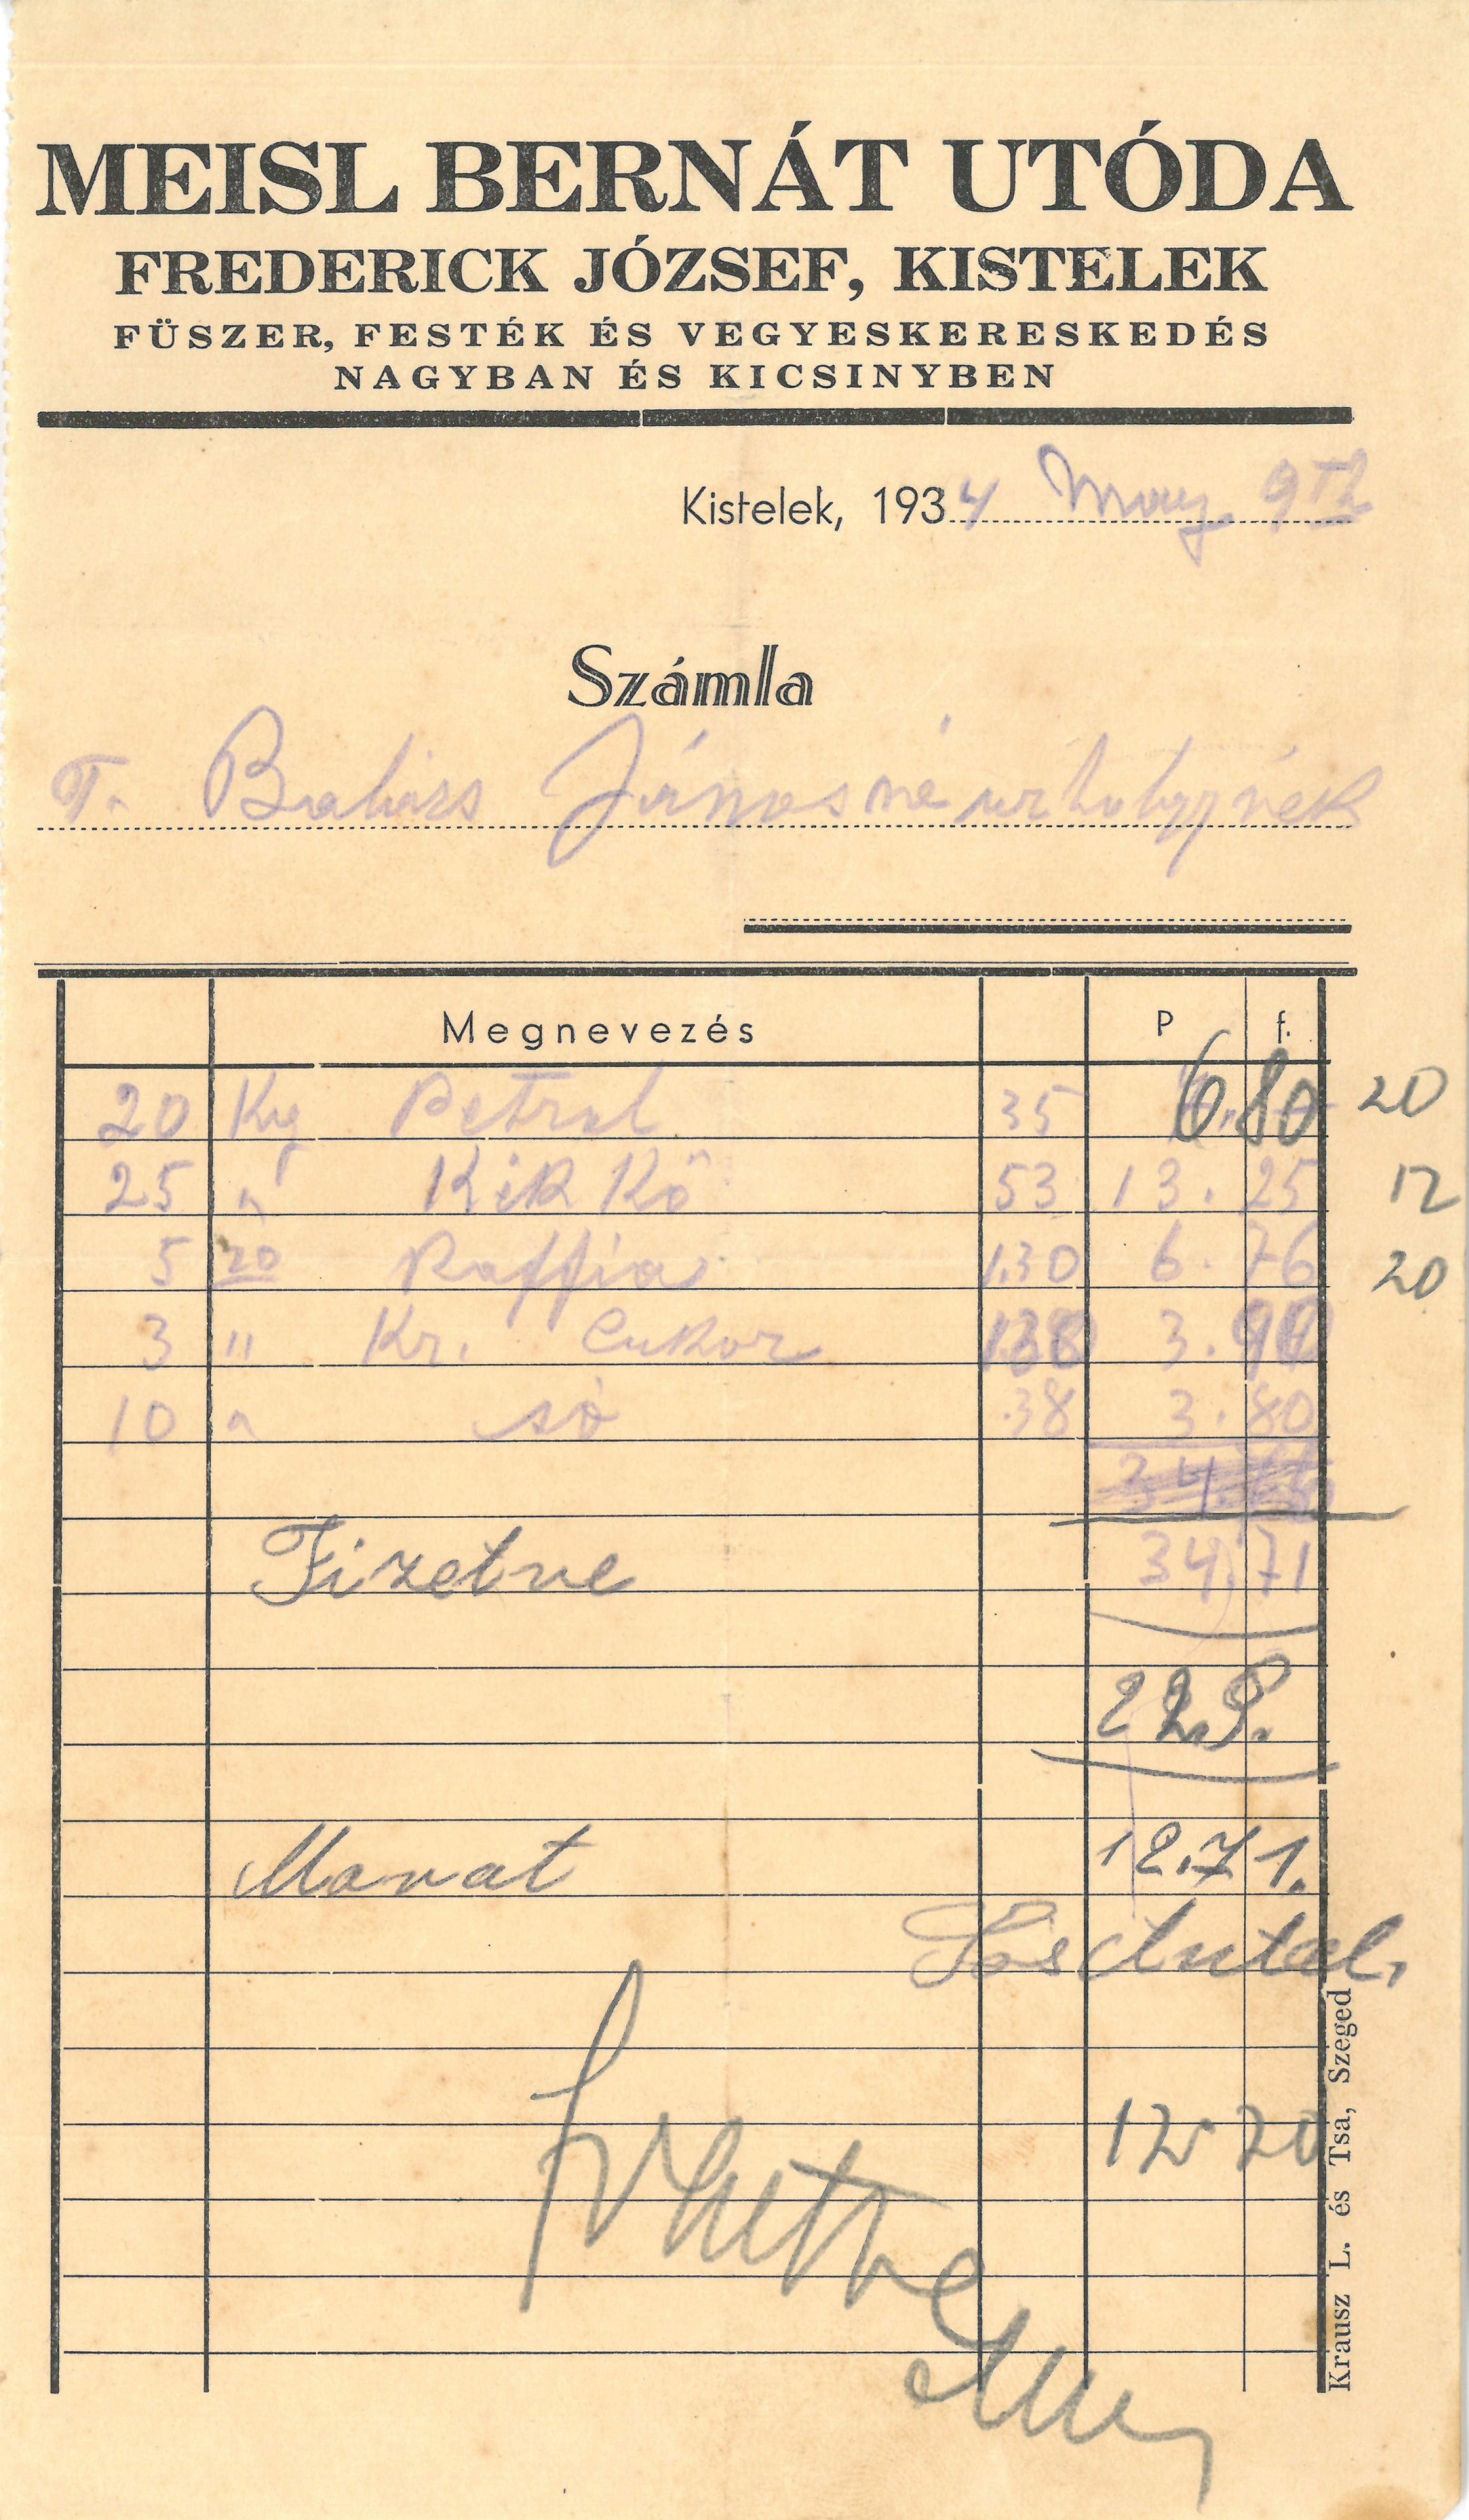 MEISL BERNÁT UTÓDA
FREDERICK JÓZSEF, KISTELEK
FÜSZER, FESTÉK ÉS VEGYESKERESKEDÉS
NAGYBAN ÉS KICSINYBEN
Kistelek, 1934 May 9
Számla
T. Balázs Jánosné úrhölgynek
Megnevezés P f.
20 Kg Petrol 35 6.80 20
25 " Kék Kő 53 13.25 12
5 20 Raffia 1.30 6.76 20
3 " Kr. Cukor 3.90
10 " só .38 3.80
Fizetve 34.71
22
Marat 12.71.
Sós Antal.
12.20
Krausz L. és Tsa, Szeged